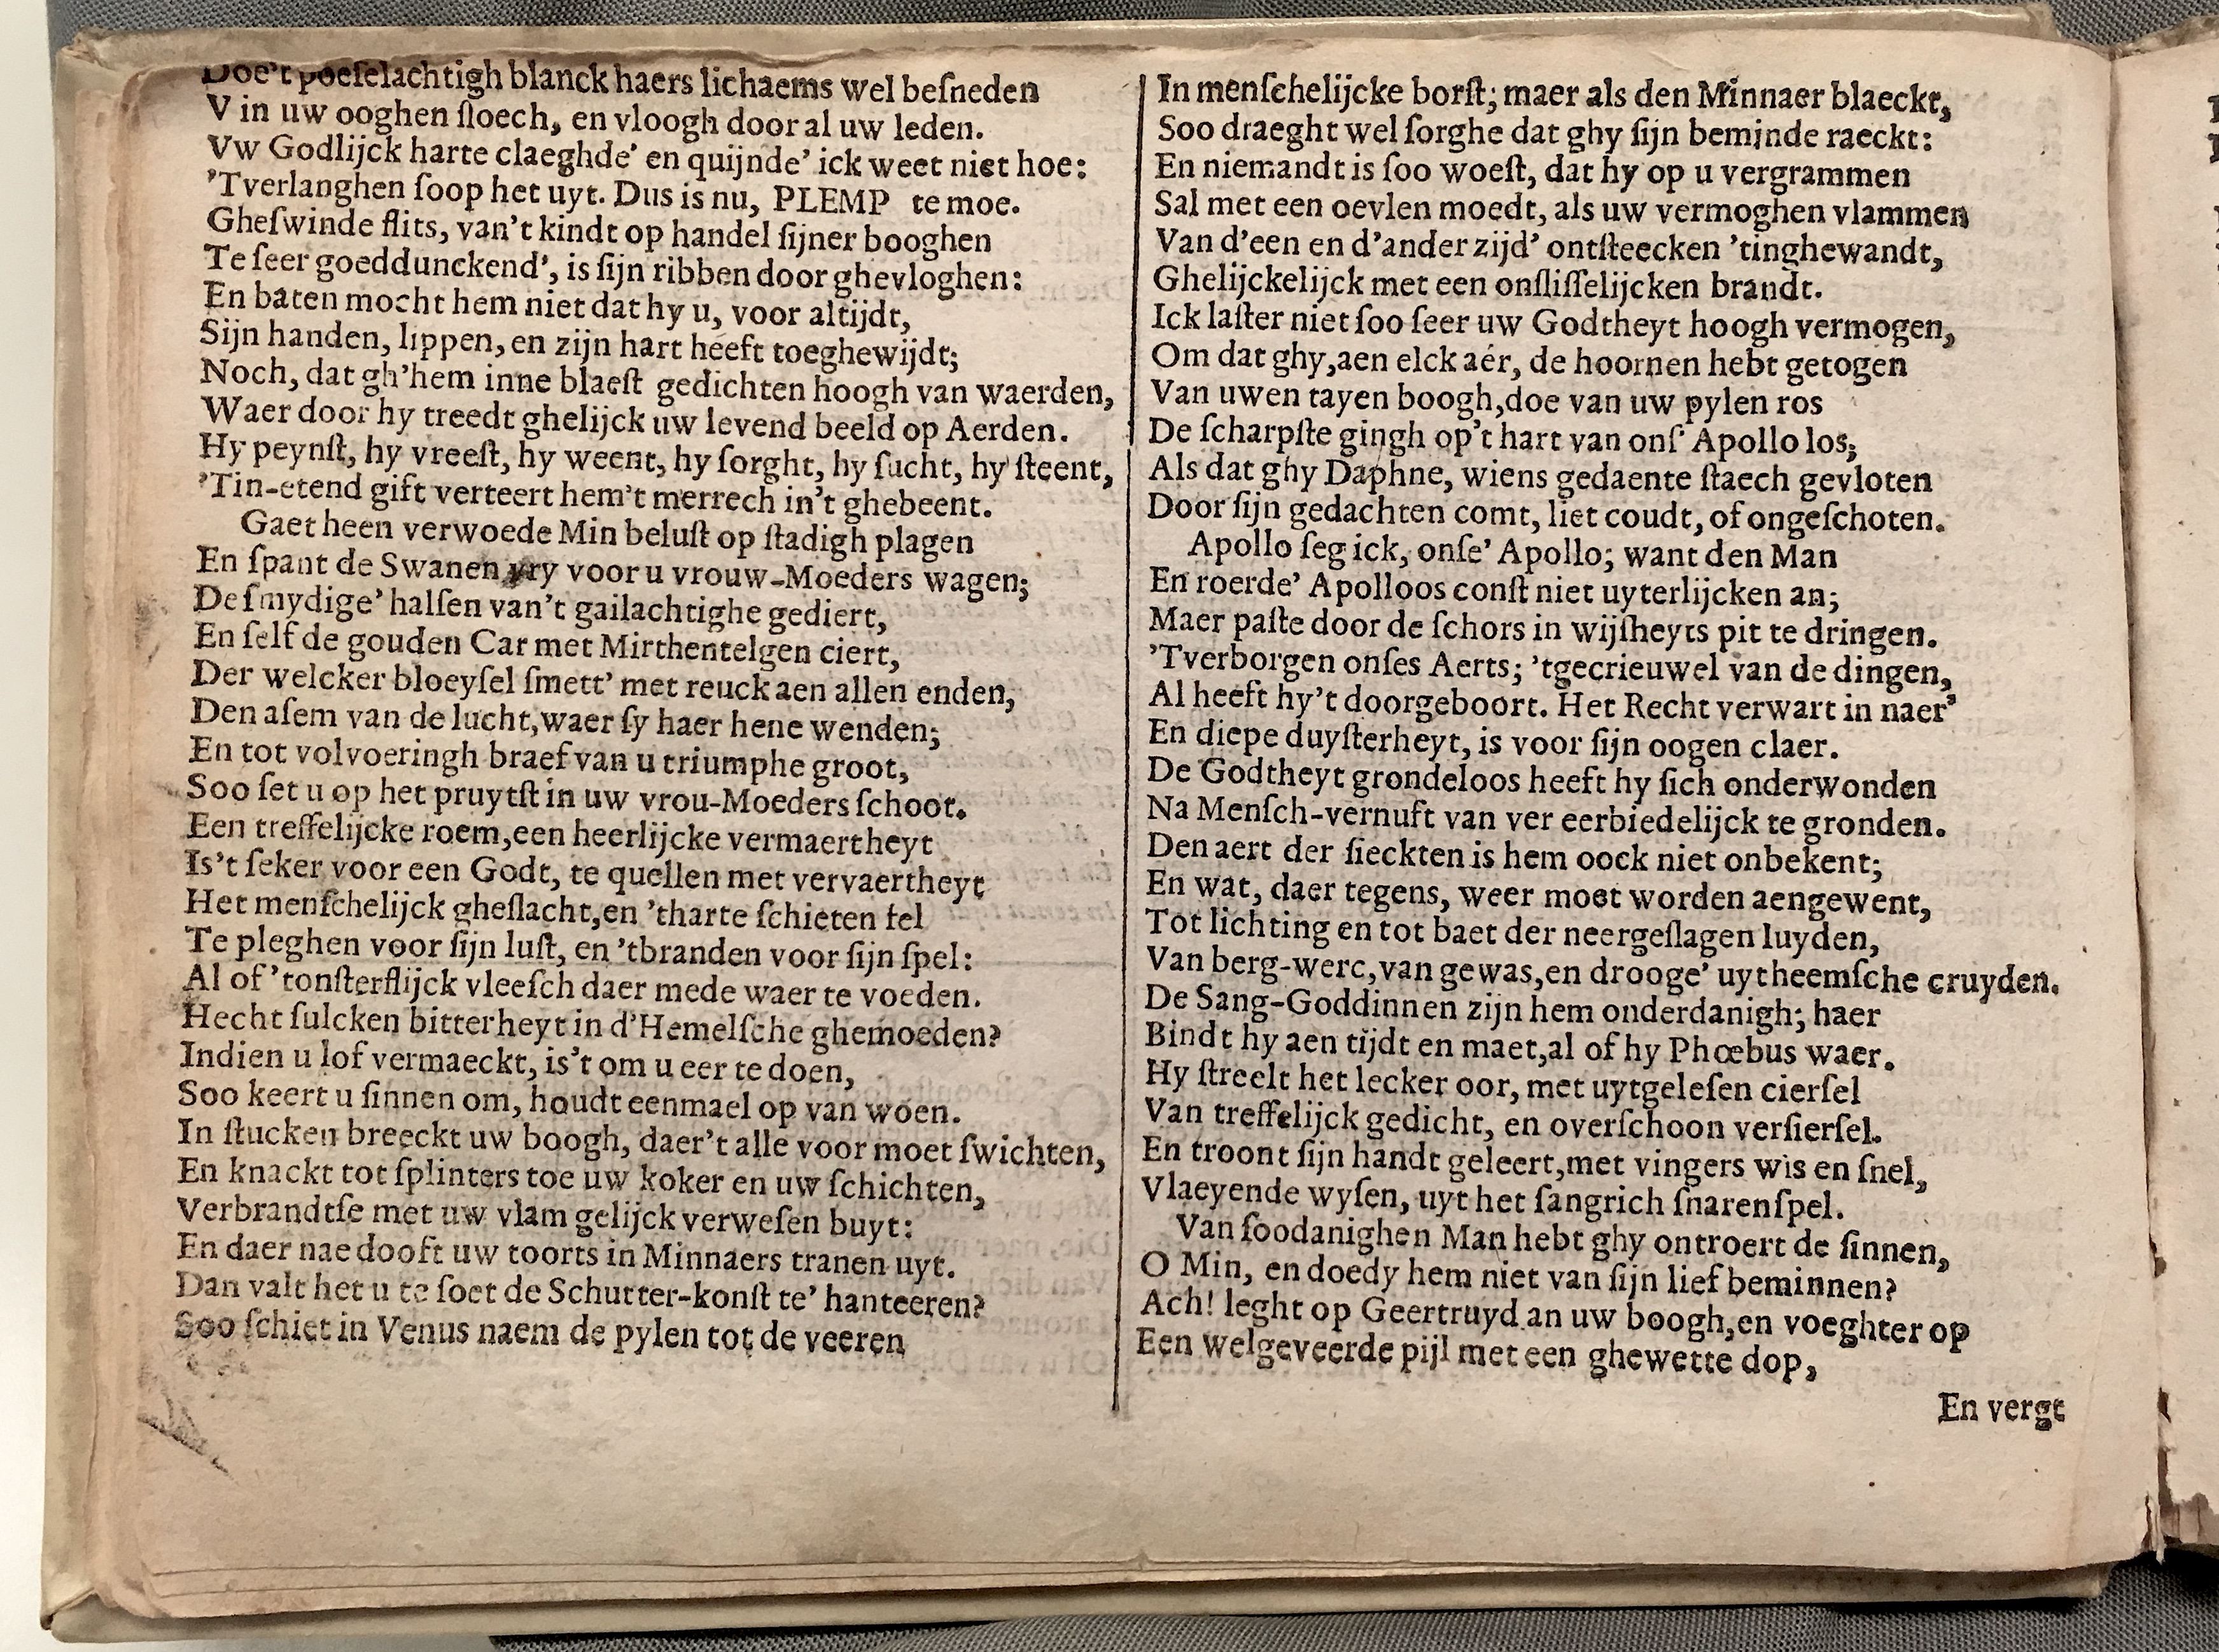 Doe't poeſelachtigh blanck haers lichaems wel beſneden
V in uw ooghen ſloech, en vloogh door al uw leden.
Vw Godlijck harte claeghde' en quijnde' ick weet niet hoe:
'Tverlanghen ſoop het uyt. Dus is nu, PLEMP te moe.
Gheſwinde flits, van't kindt op handel ſijner booghen
Te ſeer goeddunckend', is ſijn ribben door ghevloghen:
En baten mocht hem niet dat hy u, voor altijdt,
Sijn handen, lippen, en zijn hart heeft toeghewijdt;
Noch, dat gh'hem inne blaeſt gedichten hoogh van waerden,
Waer door hy treedt ghelijck uw levend beeld op Aerden.
Hy peynſt, hy vreeſt, hy weent, hy ſorght, hy ſucht, hy ſteent,
'Tin-etend gift verteert hem't merrech in't ghebeent.
Gaet heen verwoede Min beluſt op ſtadigh plagen
En ſpant de Swanen vry voor u vrouw-Moeders wagen;
De ſmydige' halſen van't gailachtighe gediert,
En ſelf de gouden Car met Mirthentelgen ciert,
Der welcker bloeyſel ſmett' met reuck aen allen enden,
Den aſem van de lucht, waer ſy haer hene wenden;
En tot volvoeringh braef van u triumphe groot,
Soo ſet u op het pruytſt in uw vrou-Moeders ſchoot.
Een treffelijcke roem, een heerlijcke vermaertheyt
Is't ſeker voor een Godt, te quellen met vervaertheyt
Het menſchelijck gheſlacht, en 'tharte ſchieten fel
Te pleghen voor ſijn luſt, en 'tbranden voor ſijn ſpel:
Al of 'tonſterflijck vleeſch daer mede waer te voeden.
Hecht ſulcken bitterheyt in d'Hemelſche ghemoeden?
Indien u lof vermaeckt, is't om u eer te doen,
Soo keert u ſinnen om, houdt eenmael op van woen.
In ſtucken breeckt uw boogh, daer't alle voor moet ſwichten,
En knackt tot ſplinters toe uw koker en uw ſchichten,
Verbrandtſe met uw vlam gelijck verweſen buyt:
En daer nae dooft uw toorts in Minnaers tranen uyt.
Dan valt het u te ſoet de Schutter-konſt te' hanteeren?
Soo ſchiet in Venus naem de pylen tot de veeren
In menſchelijcke borſt; maer als den Minnaer blaeckt,
Soo draeght wel ſorghe dat ghy ſijn beminde raeckt:
En niemandt is ſoo woeſt, dat hy op u vergrammen
Sal met een oevlen moedt, als uw vermoghen vlammen
Van d'een en d'ander zijd' ontſteecken 'tinghewandt,
Ghelijckelijck met een onſliſſelijcken brandt.
Ick laſter niet ſoo ſeer uw Godtheyt hoogh vermogen,
Om dat ghy, aen elck aêr, de hoornen hebt getogen
Van uwen tayen boogh, doe van uw pylen ros
De ſcharpſte gingh op't hart van onſ' Apollo los;
Als dat ghy Daphne, wiens gedaente ſtaech gevloten
Door ſijn gedachten comt, liet coudt, of ongeſchoten.
Apollo ſeg ick, onſe' Apollo; want den Man
En roerde' Apolloos conſt niet uyterlijcken an;
Maer paſte door de ſchors in wijſheyts pit te dringen.
'Tverborgen onſes Aerts; 'tgecrieuwel van de dingen,
Al heeft hy't doorgeboort. Het Recht verwart in naer'
En diepe duyſterheyt, is voor ſijn oogen claer.
De Godtheyt grondeloos heeft hy ſich onderwonden
Na Menſch-vernuft van ver eerbiedelijck te gronden.
Den aert der ſieckten is hem oock niet onbekent;
En wat, daer tegens, weer moet worden aengewent,
Tot lichting en tot baet der neergeſlagen luyden,
Van berg-werc, van gewas, en drooge' uytheemſche cruyden.
De Sang-Goddinnen zijn hem onderdanigh; haer
Bindt hy aen tijdt en maet, al of hy Phœbus waer.
Hy ſtreelt het lecker oor, met uytgeleſen cierſel
Van treffelijck gedicht, en overſchoon verſierſel.
En troont ſijn handt geleert, met vingers wis en ſnel,
Vlaeyende wyſen, uyt het ſangrich ſnarenſpel.
Van ſoodanighen Man hebt ghy ontroert de ſinnen,
O Min, en doedy hem niet van ſijn lief beminnen?
Ach! leght op Geertruyd an uw boogh, en voeghter op
Een welgeveerde pijl met een ghewette dop,
En vergt